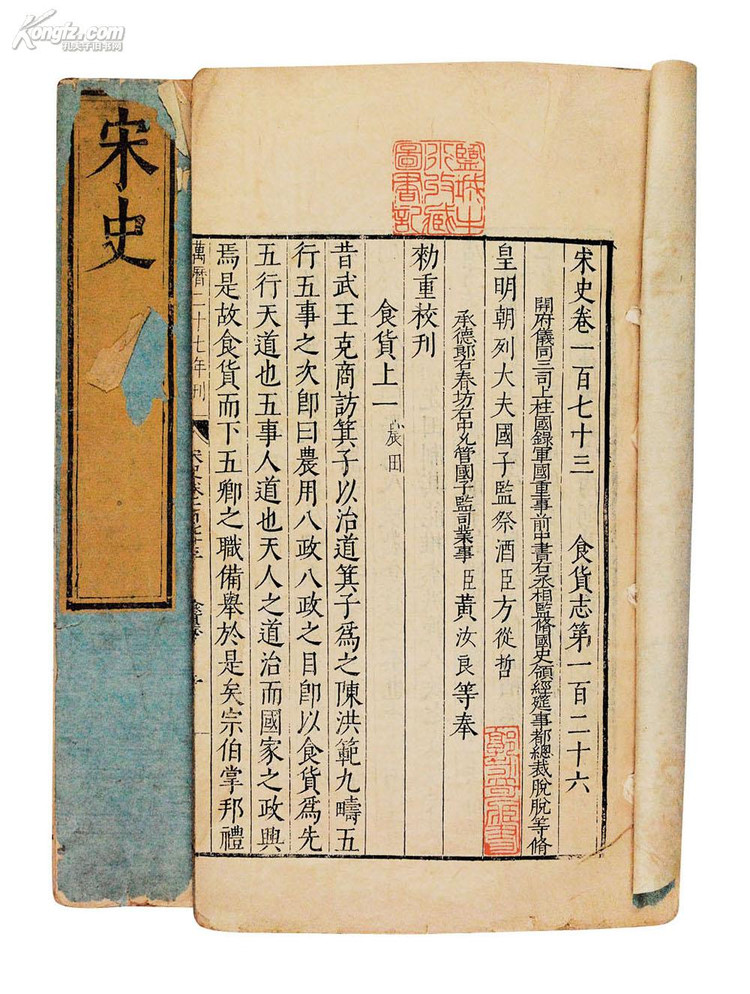 Kongfz.com
孔夫子旧书网
宋史
宋史卷一百七十三 食貨志第一百二十六
開府儀同三司上柱國錄軍國重事前中書右丞相監脩國史領經筵事都總裁脫脫等脩
皇明朝列大夫國子監祭酒臣方從哲
承德郎右春坊右中允管國子監司業事臣黃汝良等奉
勑重校刊
食貨上一 農田
昔武王克商訪箕子以治道箕子爲之陳洪範九疇五
行五事之次卽曰農用八政八政之目卽以食貨爲先
五行天道也五事人道也天人之道治而國家之政興
焉是故食貨而下五卿之職備舉於是矣宗伯掌邦禮
萬曆二十七年刊
宋史卷一百七十三
圖書記